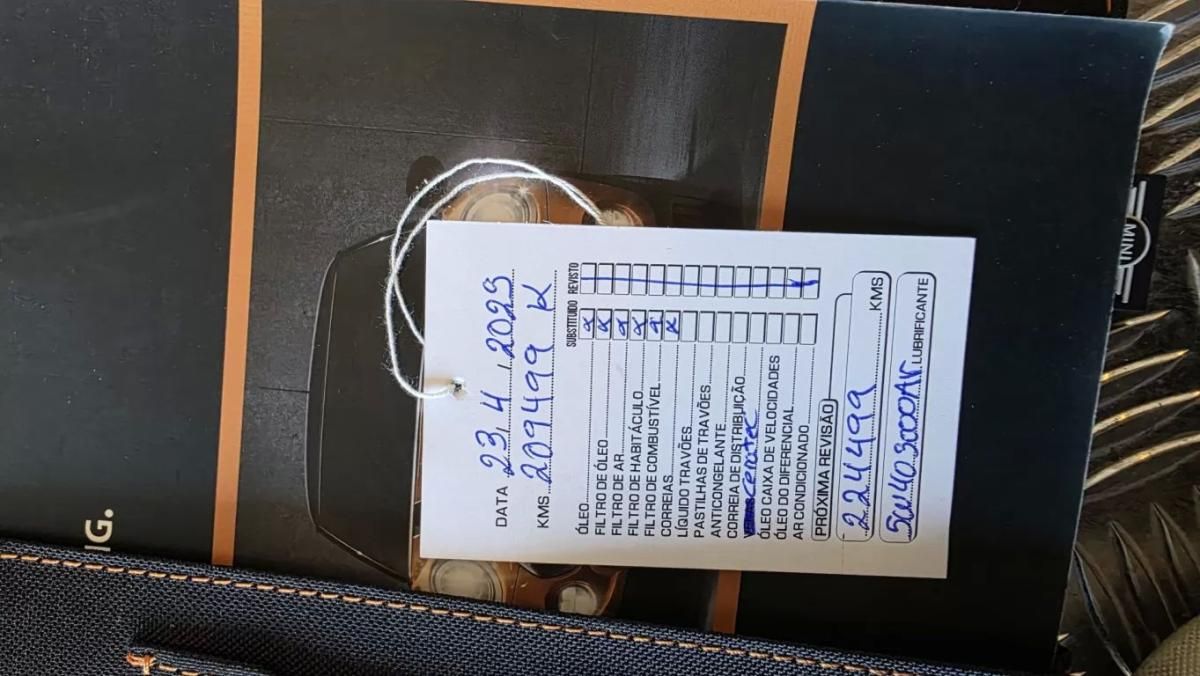 DATA 23, 4, 2025
KMS 209499 K
SUBSTITUIDO REVISTO
ÓLEO
FILTRO DE ÓLEO
FILTRO DE AR
FILTRO DE HABITÁCULO
FILTRO DE COMBUSTÍVEL
CORREIAS
LÍQUIDO TRAVÕES
PASTILHAS DE TRAVÕES
ANTICONGELANTE
CORREIA DE DISTRIBUIÇÃO
ceratec
ÓLEO CAIXA DE VELOCIDADES
ÓLEO DO DIFERENCIAL
AR CONDICIONADO
PRÓXIMA REVISÃO
224499 KMS
5W40 LUBRIFICANTE
MINI
IG.